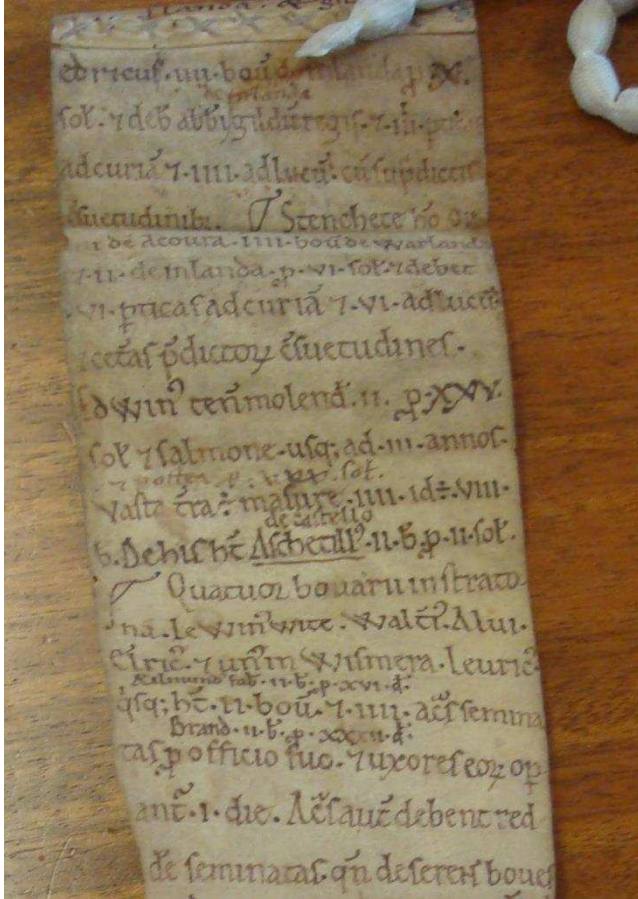 edricus .iiii. bou de inlanda p. X.
de inlanda
sol. ⁊ deb abbi gildu regis. ⁊ .iii. ptic
ad curiā ⁊ .IIII. ad lucū. cū sup dictis
ɔsuetudinib;. Stenchete hō
ni de Acoura. IIII. bou de warland
⁊ .II. de inlanda. p. VI. sol. ⁊ debet
VI. pticas ad curiā ⁊ .VI. ad lucū.
⁊ cet̄as p̄dictoꝝ ɔ̄suetudines.
Edwin⁹ ten̄ molend̄. II. p. XXV.
sol ⁊ salmone. usq; ad. III. annos.
⁊ postea. p. XXV. sol.
Vasta t̄ra: masure. IIII. id÷. VIII.
de castello
b. De his ht̄ Aschetill⁹. II. b. p. II. sol.
Quatuor bouarii in strato
na. Lewin⁹ wite. Walt̄. Alui.
Elric⁹. ⁊ un⁹ in Wismera. Leuric⁹
Ailmund fab. II. b. p. XVI. d.
qsq; ht̄. II. bou. ⁊ .IIII. ac̄s semina
Brand. II. b. p. XXXII. d.
tas p officio suo. ⁊ uxores eoꝝ op
ant̄. I. die. Ac̄s aut̄ debent red
de seminatas. qn̄ deserent boues